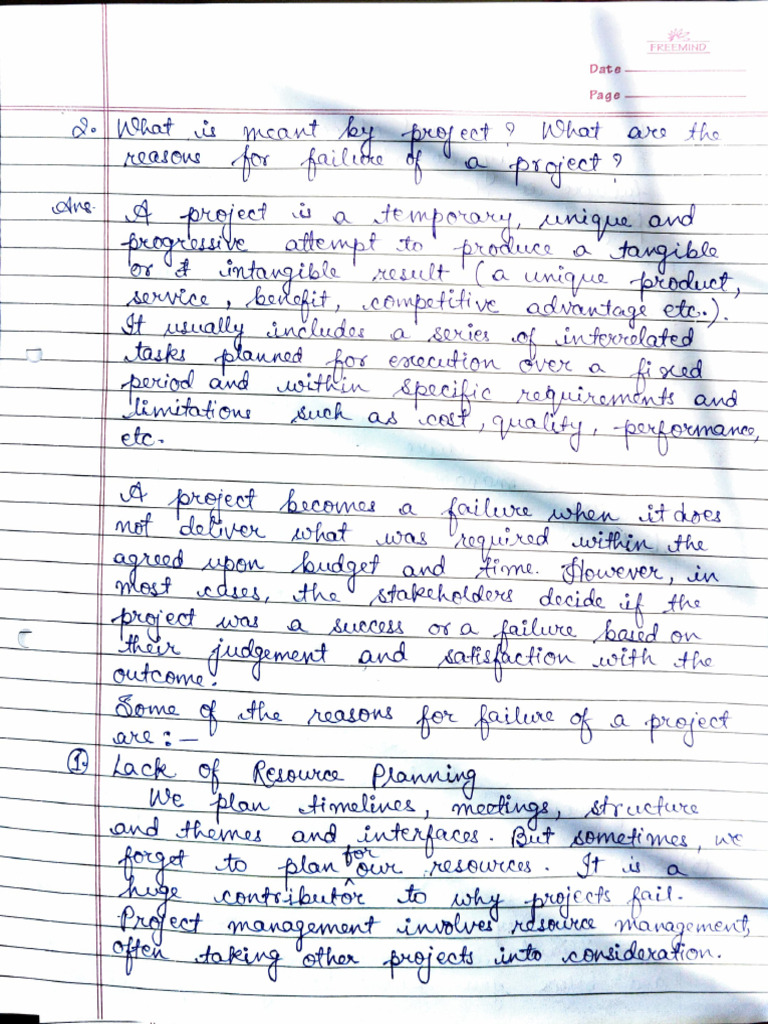 FREEMIND
Date
Page
2. What is meant by project? What are the
reasons for failure of a project?
Ans. A project is a temporary, unique and
progressive attempt to produce a tangible
or intangible result (a unique product,
service, benefit, competitive advantage etc.).
It usually includes a series of interrelated
tasks planned for execution over a fixed
period and within specific requirements and
limitations such as cost, quality, performance,
etc.
A project becomes a failure when it does
not deliver what was required within the
agreed upon budget and time. However, in
most cases, the stakeholders decide if the
project was a success or a failure based on
their judgement and satisfaction with the
outcome.
Some of the reasons for failure of a project
are:-
1. Lack of Resource Planning
We plan timelines, meetings, structure
and themes and interfaces. But sometimes, we
forget to plan for our resources. It is a
huge contributor to why projects fail.
Project management involves resource management,
often taking other projects into consideration.